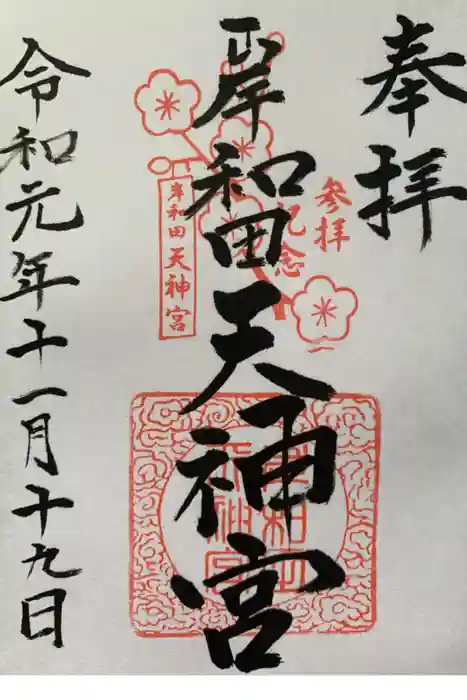 奉拝
岸和田天神宮
令和元年十一月十九日
参拝
記念
岸和田天神宮
岸和田
天神宮